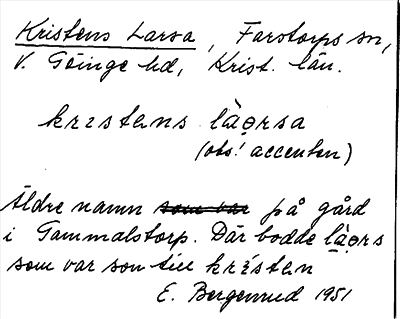 Kristens Larsa, Farstorps sn,
V. Göinge hd, Krist. län.
krɪstens là̱ǝrsa
(obs! accenten)
Äldre namn ~~som var~~ på gård
i Gammalstorp. Där bodde là̱ǝrs
som var son till krɪ́sten
E. Bergenrud 1951